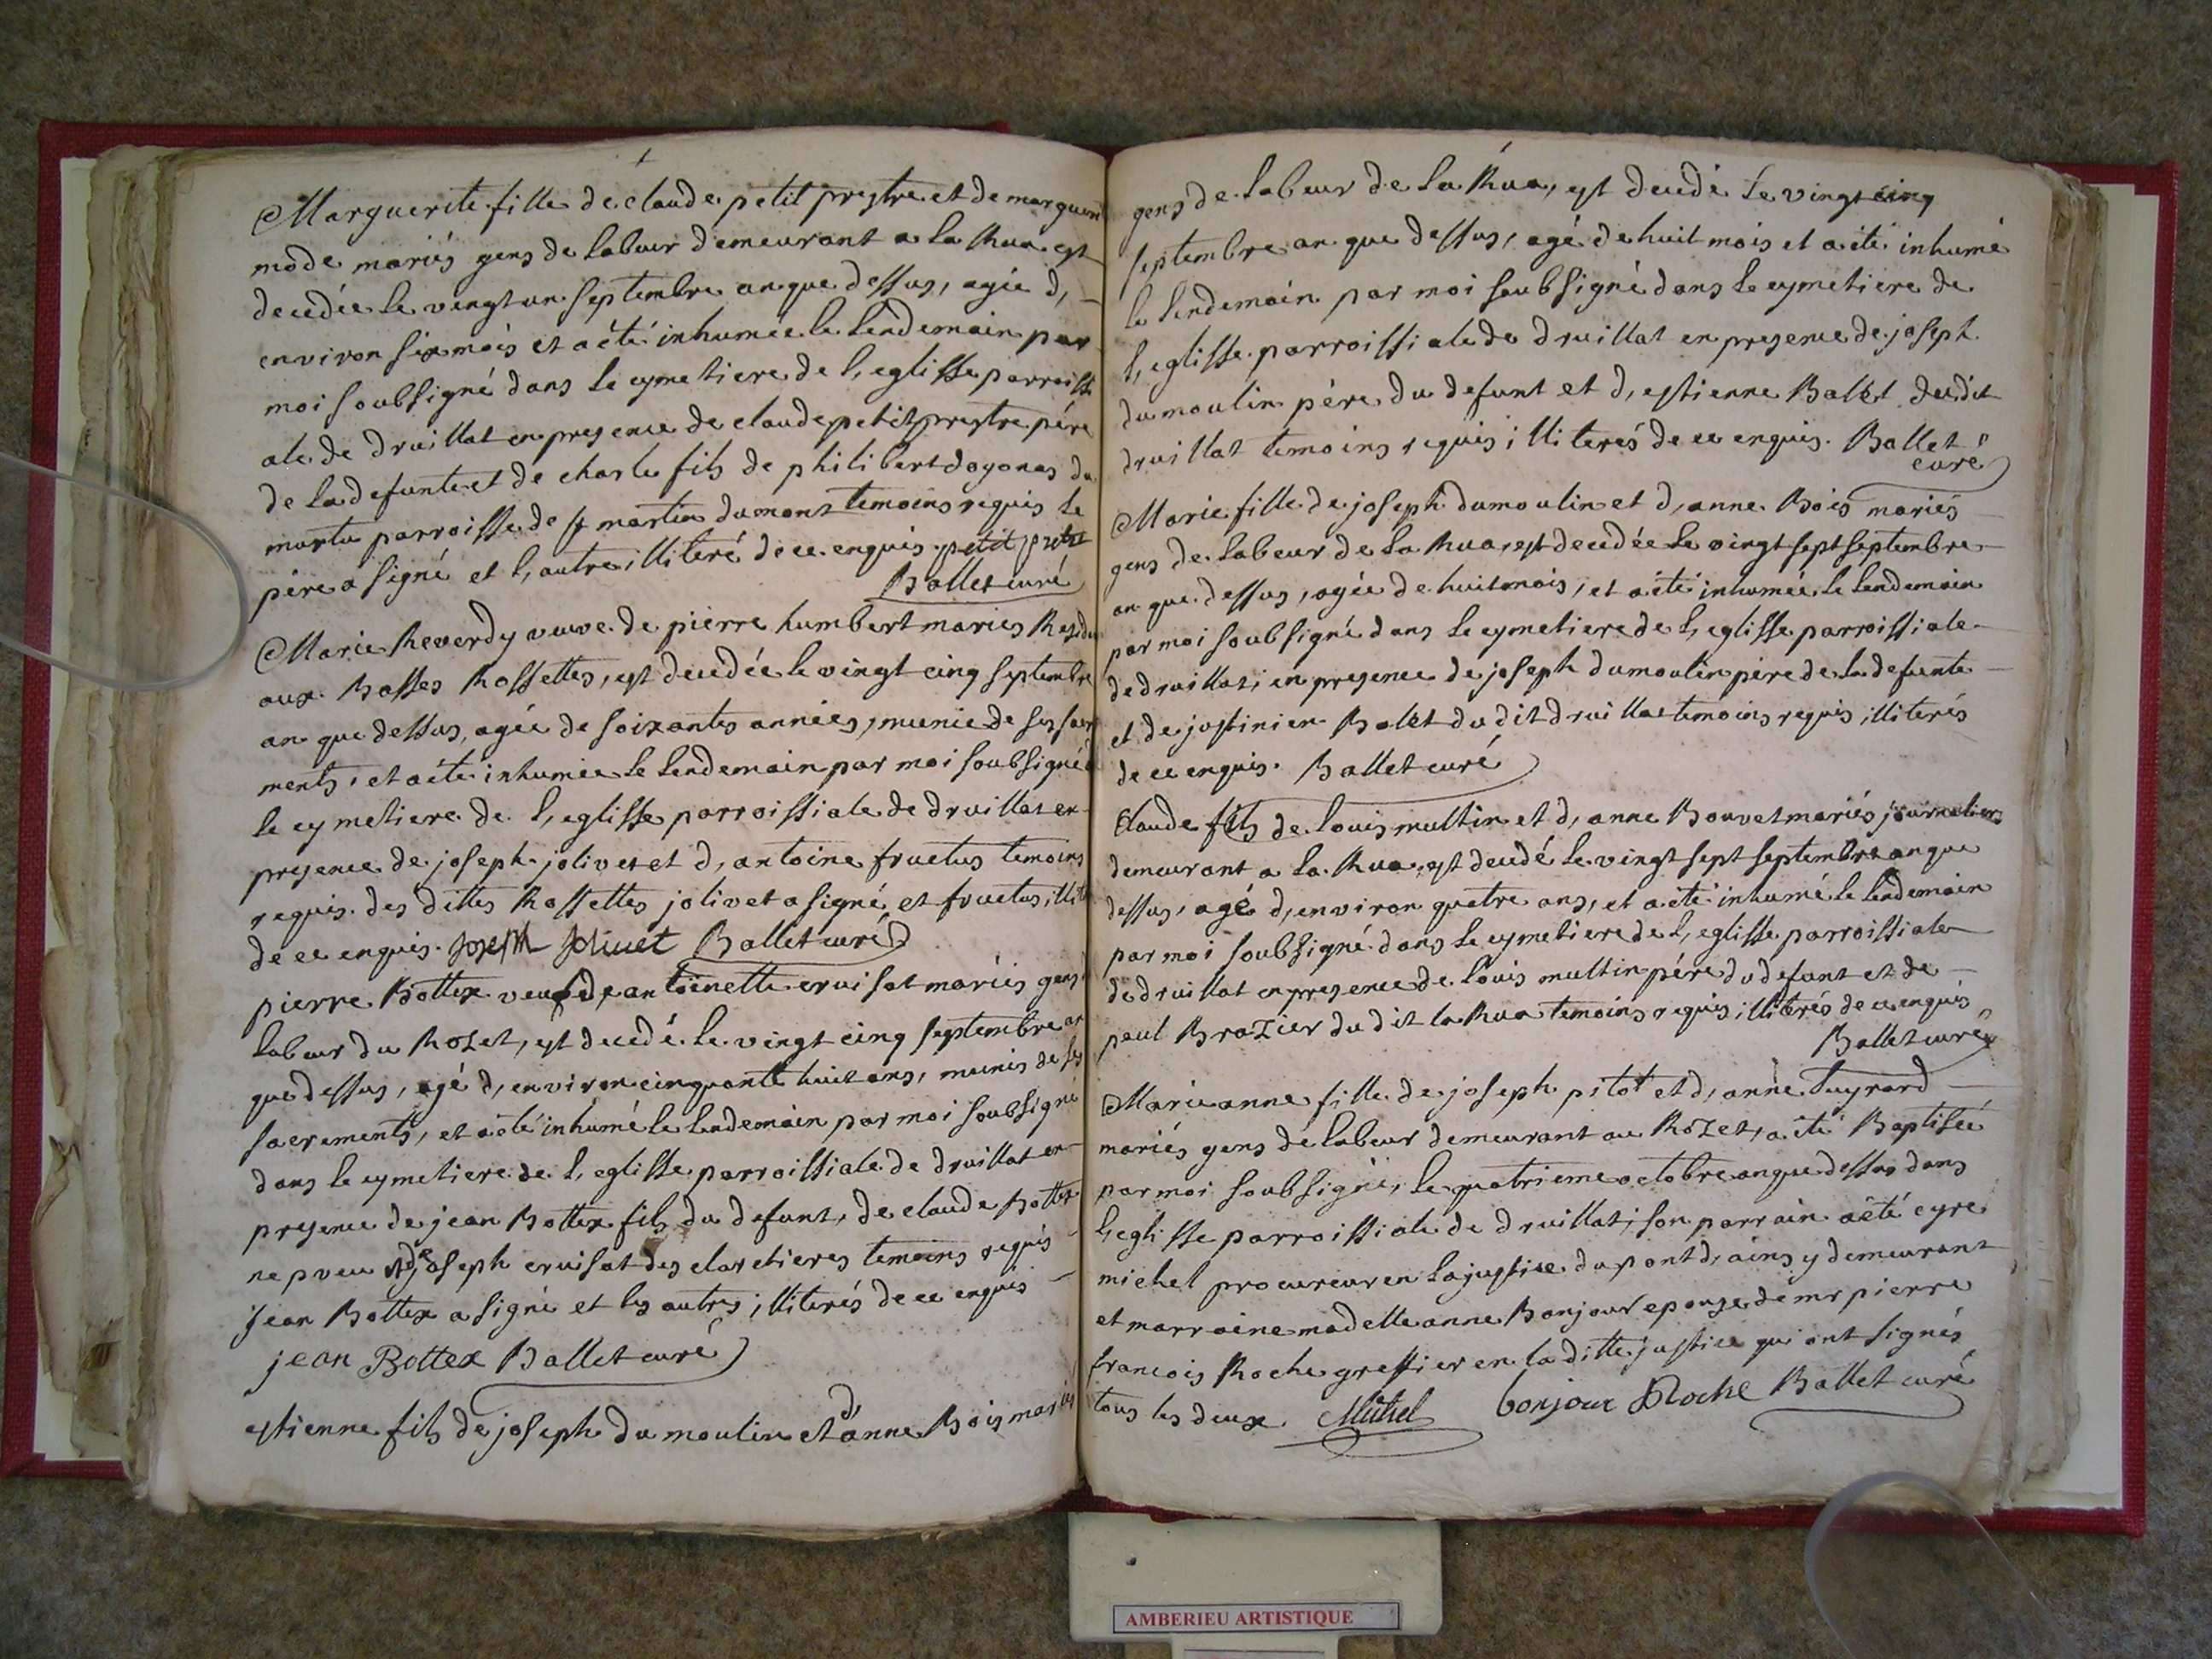 Marguerite fille de claude petit prestre et de marguerit
mode mariés gens de labeur demeurant a la Rua est
decedée le vingt un septembre an que dessus, agée d,
environ six mois et a été inhumée le lendemain par
moi soubsigné dans le cymetiere de l, eglisse parroissi
ale de druillat en presence de claude petit prestre pére
de la defunte et de charle fils de philibert dogonas du
parroisse de st martin du mont temoins requis le
pére a signé et l, autre illiteré de ce enquis. petit pretre
Ballet curé
Marie Reverdy veuve de pierre humbert mariés
aux Basses Rossettes, est decedée le vingt cinq septembre
an que dessus, agée de soixantes années, munie de ses sacre
ments, et a été inhumée le lendemain par moi soubsigné d
le cymetiere de l, eglisse parroissiale de druillat en
presence de joseph jolivet et d, antoine fructus temoins
requis des dittes Rossettes jolivet a signé et fructus illite
de ce enquis. Joseph Jolivet Ballet curé
pierre Bottex veuf d, antoinette cruisat mariés gens
labeur du Rozet, est decedé le vingt cinq septembre an
que dessus, agé d, environ cinquante huit ans, munis de ses
sacrements, et a été inhumé le lendemain par moi soubsigné
dans le cymetiere de l, eglisse parroissiale de druillat en
presence de jean Bottex fils du defunt, de claude Bottex
nepveu et de joseph cruisat des claretieres temoins requis
jean Bottex a signé et les autres illiterés de ce enquis
jean Bottex Ballet curé
estienne fils de joseph du moulin et d, anne Bois mariés
gens de labeur de la Rua, est decedé le vingt cinq
septembre an que dessus, agé de huit mois et a été inhumé
le lendemain par moi soubsigné dans le cymetiere de
l, eglisse parroissiale de druillat en presence de joseph
dumoulin pére du defunt et d, estienne Ballet dudit
druillat temoins requis illiterés de ce enquis. Ballet
curé
Marie fille de joseph dumoulin et d, anne Bois mariés
gens de labeur de la Rua, est decedée le vingt sept septembre
an que dessus, agée de huit mois, et a été inhumée le lendemain
par moi soubsigné dans le cymetiere de l, eglisse parroissiale
de druillat, en presence de joseph dumoulin pére de la defunte
et de justinien Balet du dit druillat temoins requis, illiterés
de ce enquis. Ballet curé
Claude fils de louis multin et d, anne Bouvet mariés journaliers
demeurant a la Rua, est decedé le vingt sept septembre an que
dessus, agé d, environ quatre ans, et a été inhumé le lendemain
par moi soubsigné dans le cymetiere de l, eglisse parroissiale
de druillat en presence de louis multin pére du defunt et de
paul Brazier du dit la Rua temoins requis illiterés de ce enquis
Ballet curé
Marie anne fille de joseph pitot et d, anne Tuyrard
mariés gens de labeur demeurant au Rozet, a été Baptisée
par moi soubsigné, le quatrieme octobre an que dessus dans
l, eglisse parroissiale de druillat; son parrain a été cyre
michel procureur en la justice du pont d, ains y demeurant
et marraine madelle anne Bonjour epouze de mr pierre
francois Roche greffier en la ditte justice qui ont signés
tous les deux. Michel bonjour Roche Ballet curé
AMBERIEU ARTISTIQUE